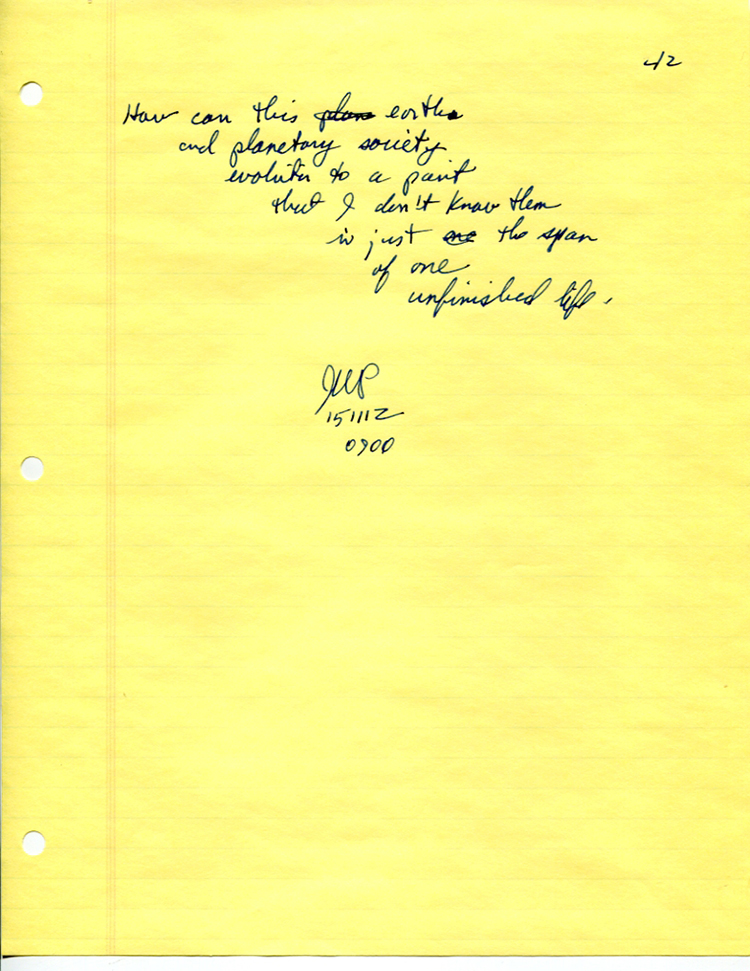 42
How can this plane earth
and planetary society
evolution to a point
that I don't know them
in just one the span
of one
unfinished life.
151112
0900